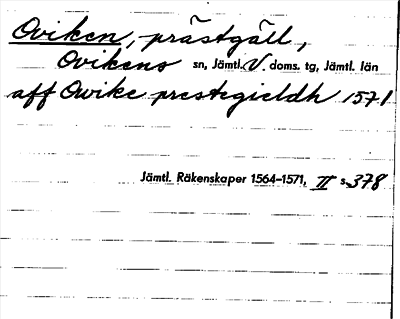 Oviken, prästgäll,
Ovikens sn, Jämtl. V. doms. tg, Jämtl. län
aff Owike prestegieldh 1571
Jämtl. Räkenskaper 1564–1571, II s. 378